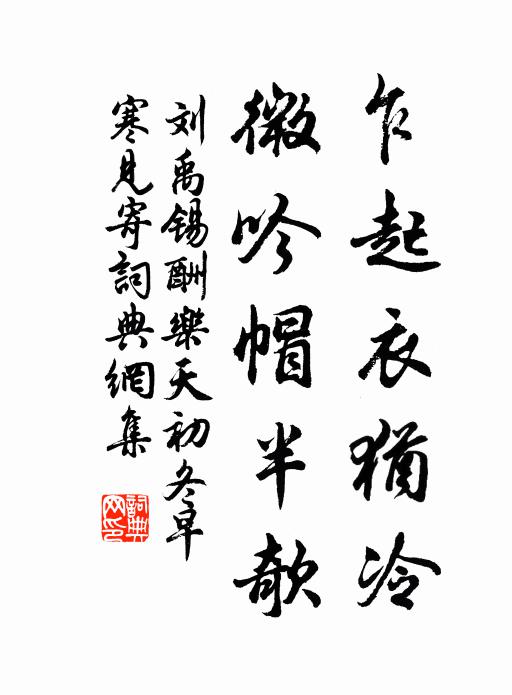 乍起衣猶冷
微吟帽半欹
刘禹锡酬樂天初冬早
寒見寄詞典網集
詞典
网印